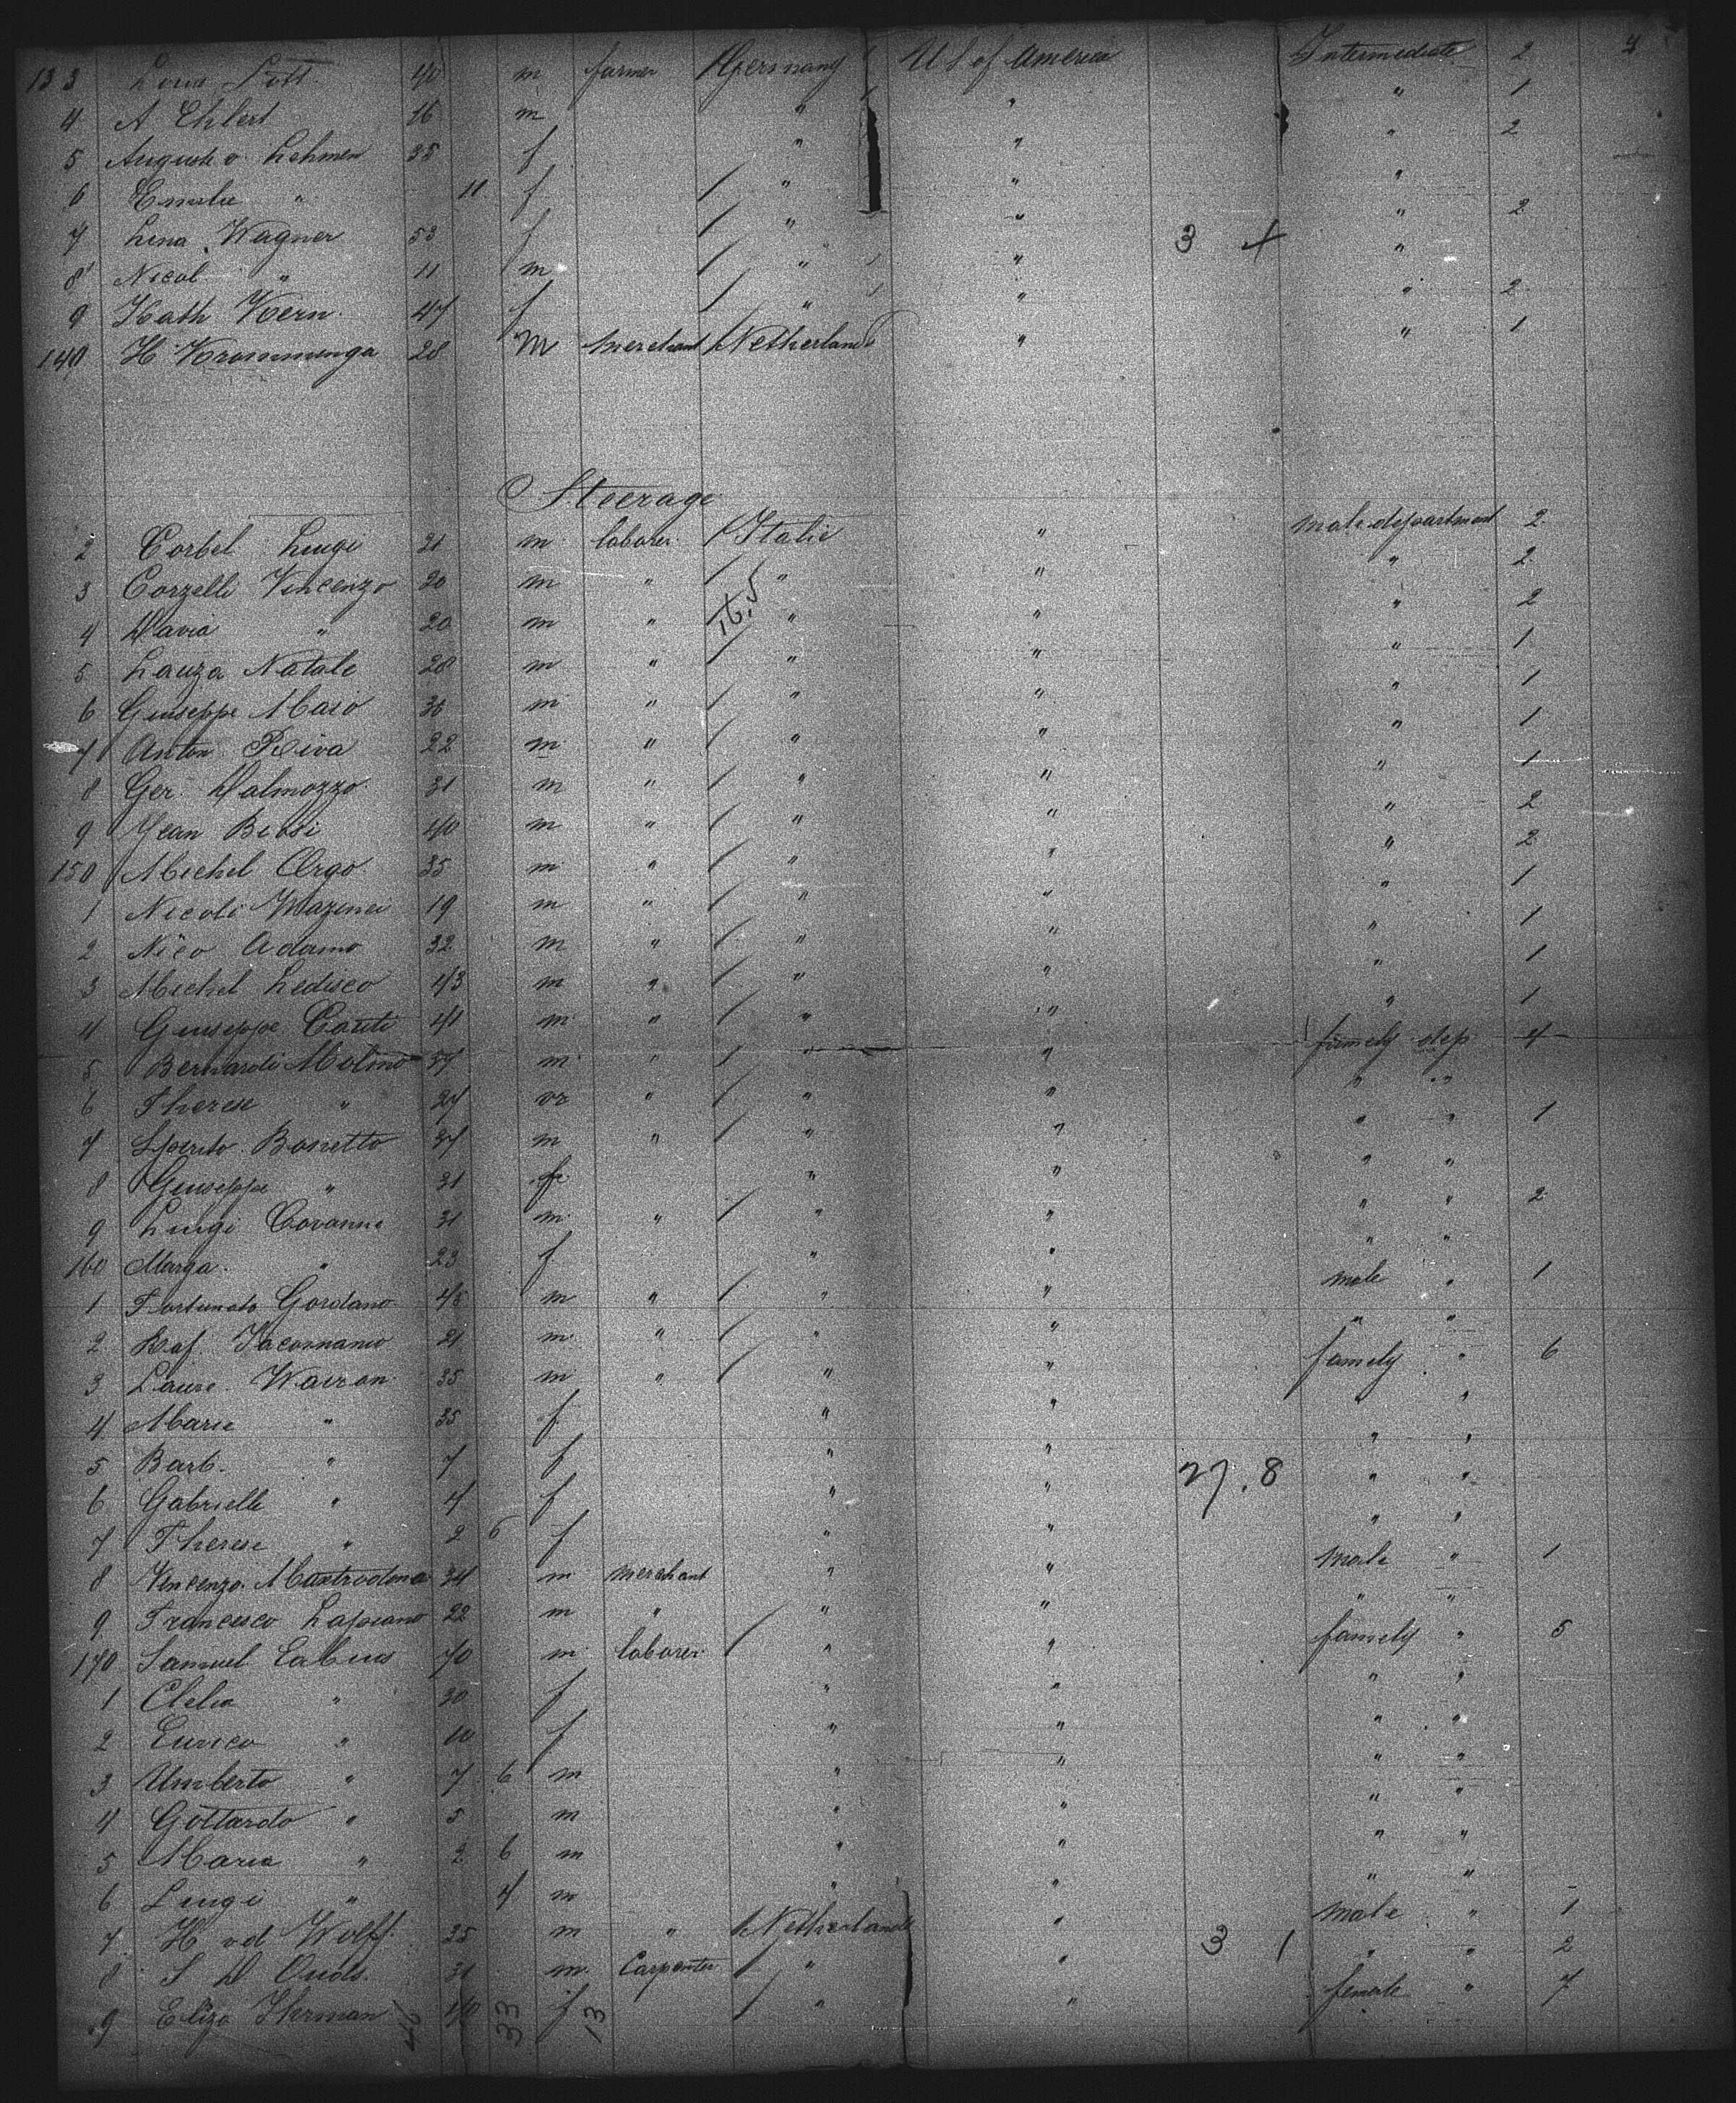 133 Louis Lott 40 m farmer Germany U S of America Intermediate 2 4
4 A Ehlert 16 m " " " 1
5 Auguste v. Lehmen 35 f " " " 2
6 Emilie " 11 f " " "
7 Lina Wagner 53 f " " 3 + " 2
8 Nicol " 11 m " " "
9 Kath Kern 47 f " " " 2
140 H Krommenga 28 m merchant Netherland " " 1
Steerage
2 Corbel Luigi 21 m laborer Italie " male department 2
3 Corzelli Vincenzo 20 m " " " " 2
4 Davia " 20 m " 16.5 " " " 2
5 Lauza Natale 28 m " " " " 1
6 Giuseppe Maio 36 m " " " " 1
7 Anton Riva 22 m " " " " 1
8 Ger. Dalmozzo 31 m " " " " 1
9 Jean Biosi 40 m " " " " 2
150 Michel Orgo 35 m " " " " 2
1 Nicoli Mazinei 19 m " " " " 1
2 Nico Adamo 32 m " " " " 1
3 Michel Ledisco 43 m " " " " 1
4 Giuseppe Conti 41 m " " " " 1
5 Bernardi Molino 37 m " " " famely dep 4
6 Therese " 27 m " " " " "
7 Spirito Bonetto 37 m " " " " " 1
8 Giuseppe " 31 f " " " "
9 Luigi Covanna 31 m " " " " " 2
160 Marga. " 23 f " " " "
1 Fortunato Gordano 45 m " " " male " 1
2 Raf. Jacomano 21 m " " " " "
3 Laure. Wairan 35 m " " " famely " 6
4 Marie " 35 f " " "
5 Barb. " 7 f " " " "
6 Gabrielle " 4 f " " 27.8 " "
7 Therese " 2 6 f " " " "
8 Vincenzo Mastrodona 34 m merchant " " male " 1
9 Francesco Lapiano 22 m " " " " "
170 Samuel Cabus 70 m laborer " " famely " 5
1 Clelia " 30 f " " " "
2 Enrico " 10 f " " " "
3 Umberto " 7 6 m " " " "
4 Gottardo " 5 m " " " "
5 Maria " 2 6 m " " " "
6 Luigi " 4 m " " " "
7 H vd Wolff 25 m " Netherlands " male " 1
8 S D Ouds. 31 m Carpenter " " 3 1 " " 2
9 Eliza Herman 40 f " " female " 7
46 33 13